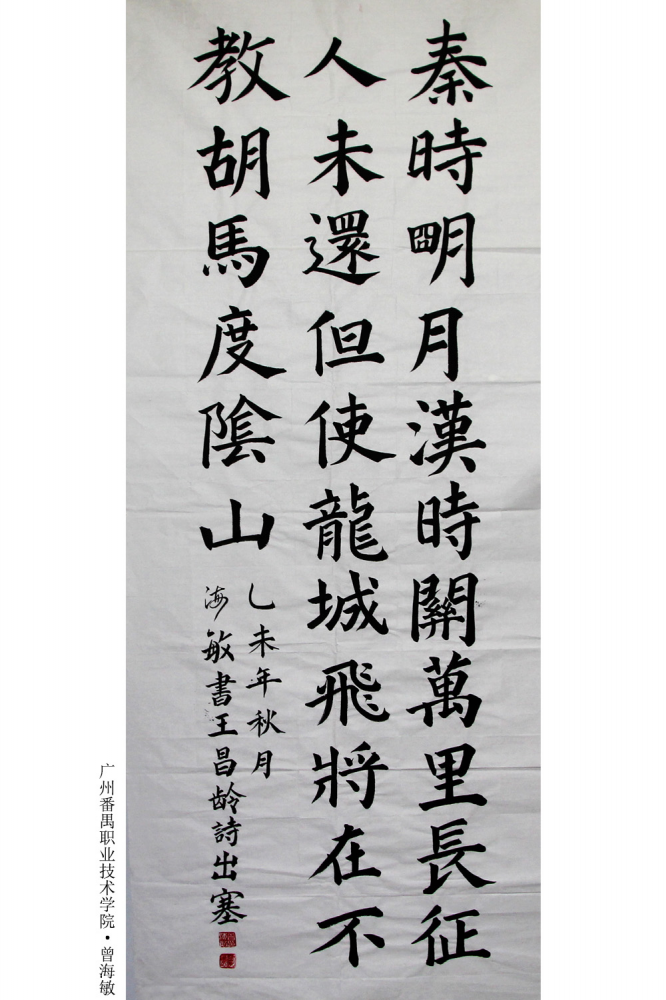 秦時明月漢時關萬里長征
人未還但使龍城飛將在不
教胡馬度陰山
乙未年秋月
海敏書王昌龄詩出塞
广州番禺职业技术学院·曾海敏